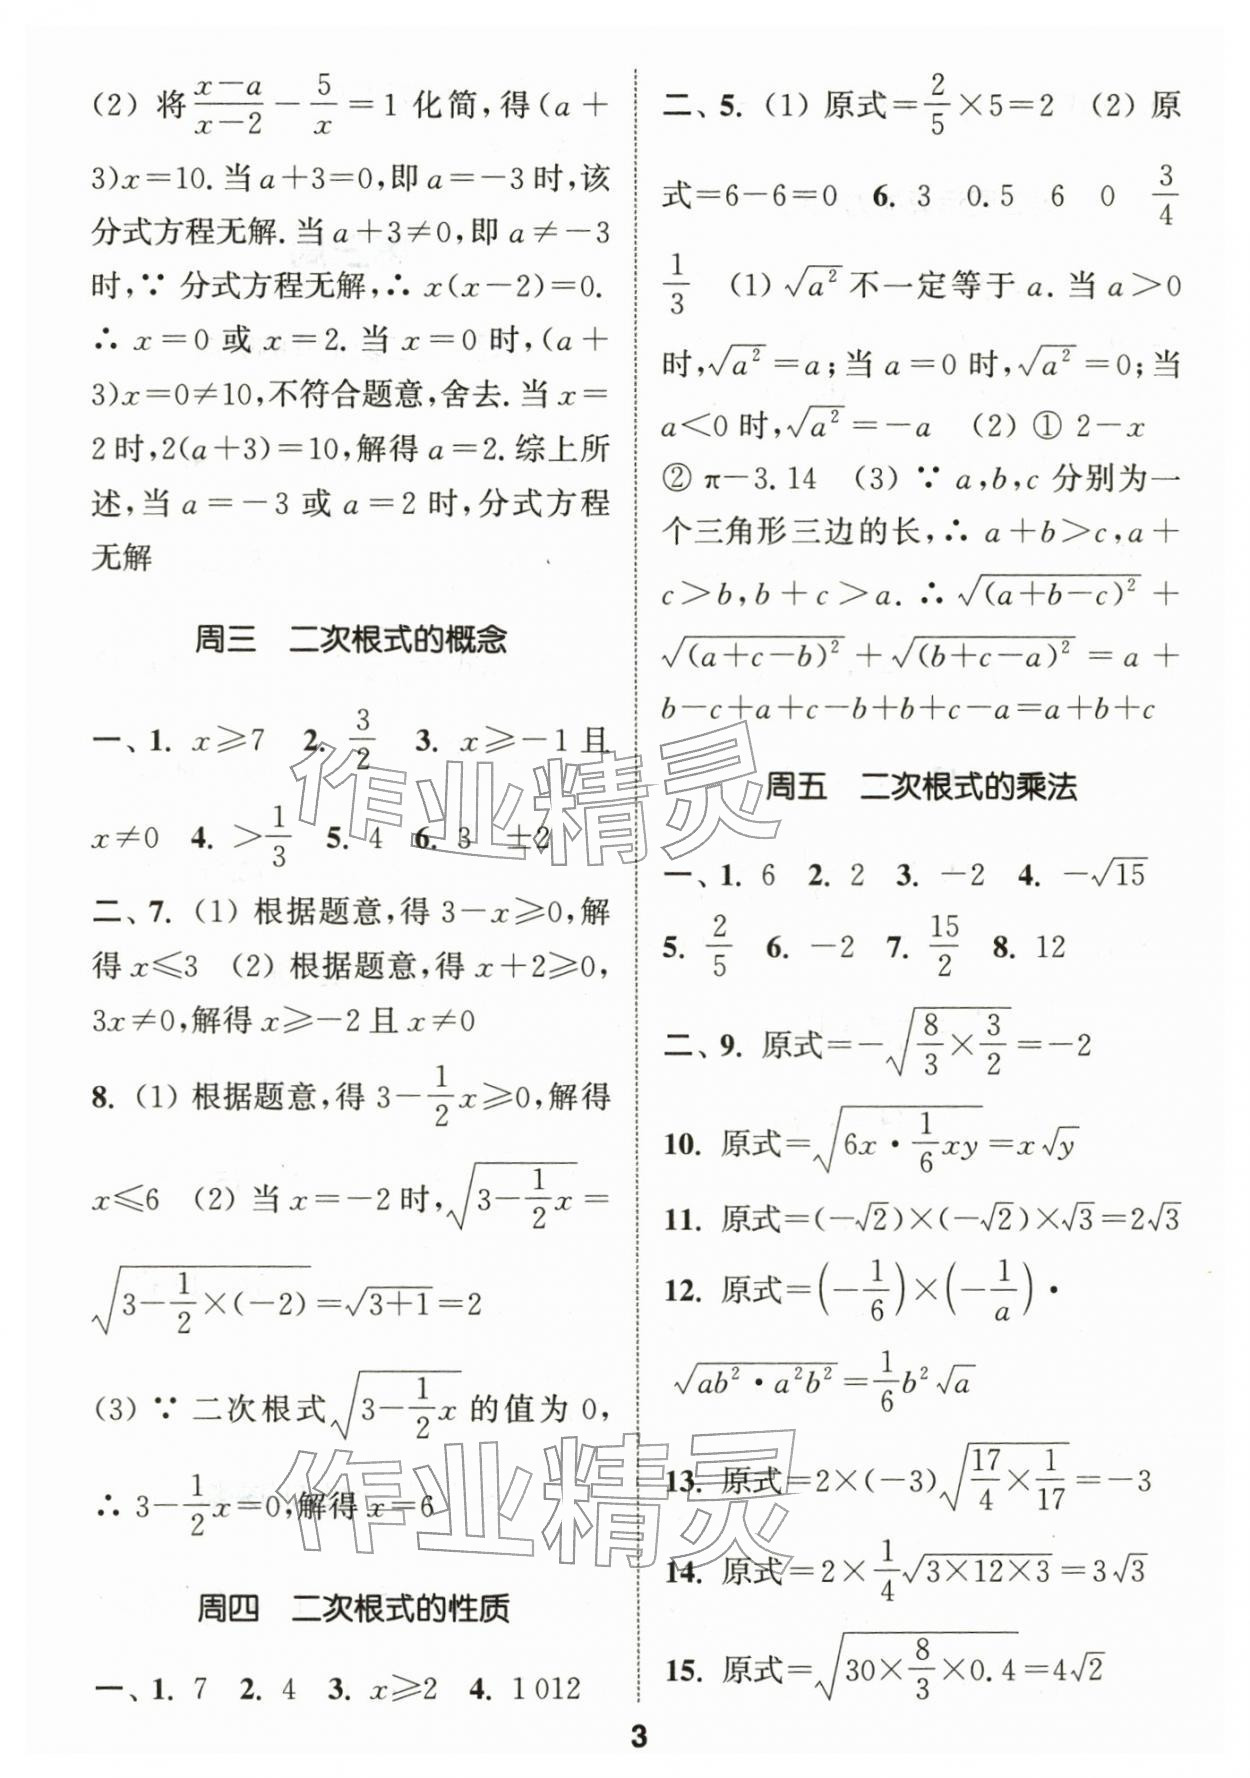 (2) 将(x−a)/(x−2)−5/x=1 化简,得(a+
3)x=10. 当 a+3=0,即 a=−3 时,该
分式方程无解. 当 a+3≠0,即 a≠−3
时,∵ 分式方程无解,∴ x(x−2)=0.
∴ x=0 或 x=2. 当 x=0 时,(a+
3)x=0≠10,不符合题意,舍去. 当 x=
2 时,2(a+3)=10,解得 a=2. 综上所
述,当 a=−3 或 a=2 时,分式方程
无解
周三 二次根式的概念
一、1. x⩾7 2. 3/2 3. x⩾−1 且
x≠0 4. >1/3 5. 4 6. 3 ±2
二、7. (1) 根据题意,得 3−x⩾0,解
得 x⩽3 (2) 根据题意,得 x+2⩾0,
3x≠0,解得 x⩾−2 且 x≠0
8. (1) 根据题意,得 3−1/2x⩾0,解得
x⩽6 (2) 当 x=−2 时,√(3−1/2x)=
√(3−1/2×(−2))=√(3+1)=2
(3) ∵ 二次根式√(3−1/2x)的值为 0,
∴ 3−1/2x=0,解得 x=6
周四 二次根式的性质
一、1. 7 2. 4 3. x⩾2 4. 1 012
二、5. (1) 原式=2/5×5=2 (2) 原
式=6−6=0 6. 3 0.5 6 0 3/4
1/3 (1) √a² 不一定等于 a. 当 a>0
时,√a²=a;当 a=0 时,√a²=0;当
a<0 时,√a²=−a (2) ① 2−x
② π−3.14 (3) ∵ a,b,c 分别为一
个三角形三边的长,∴ a+b>c,a+
c>b,b+c>a. ∴ √(a+b−c)²+
√(a+c−b)²+√(b+c−a)²=a+
b−c+a+c−b+b+c−a=a+b+c
周五 二次根式的乘法
一、1. 6 2. 2 3. −2 4. −√15
5. 2/5 6. −2 7. 15/2 8. 12
二、9. 原式=−√(8/3×3/2)=−2
10. 原式=√(6x·1/6xy)=x√y
11. 原式=(−√2)×(−√2)×√3=2√3
12. 原式=(−1/6)×(−1/a)·
√(ab²·a²b²)=1/6b²√a
13. 原式=2×(−3)√(17/4×1/17)=−3
14. 原式=2×1/4√(3×12×3)=3√3
15. 原式=√(30×8/3×0.4)=4√2
3
作业精灵
作业精灵